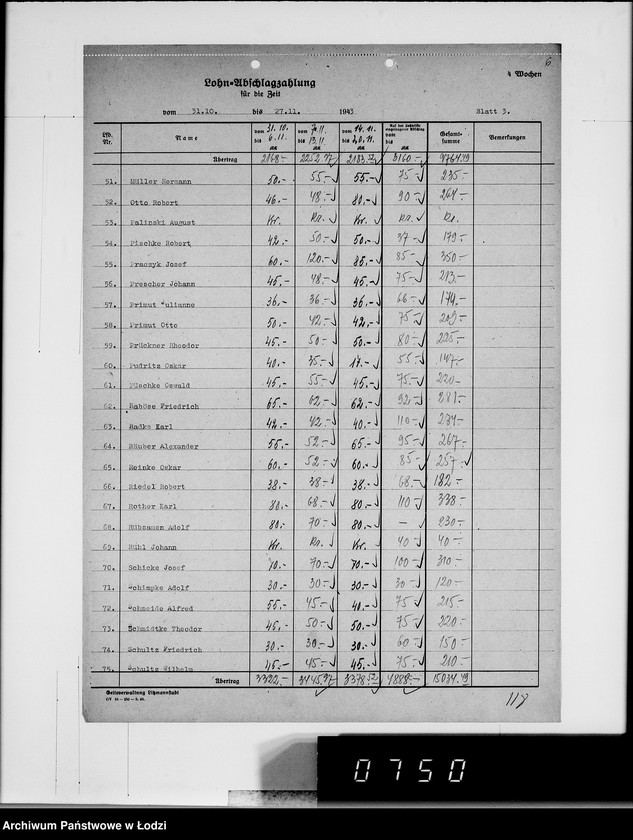 6
4 Wochen
Lohn-Abschlagzahlung
für die Zeit
vom 31.10. bis 27.11. 1943 Blatt 3.
Lfd. Nr. Name vom 31.10. bis 6.11. vom 7.11. bis 13.11. vom 14.11. bis 20.11. Gesamtsumme Bemerkungen
Übertrag 2168.- 2252.97 3160.- 9764.49
51. Müller Hermann 50.- 55.- 55.- 75.- 235.-
52. Otto Robert 46.- 48.- 80.- 90.- 264.-
53. Palinski August Kr. Kr. Kr. Kr. Kr.
54. Pischke Robert 42.- 50.- 50.- 37.- 179.-
55. Praczyk Josef 60.- 120.- 85.- 85.- 350.-
56. Prescher Johann 45.- 48.- 45.- 75.- 213.-
57. Primut Julianne 36.- 36.- 36.- 66.- 174.-
58. Primut Otto 50.- 42.- 42.- 75.- 209.-
59. Prückner Rheodor 45.- 50.- 50.- 80.- 225.-
60. Pudritz Oskar 40.- 35.- 17.- 55.- 147.-
61. Püschke Oswald 45.- 55.- 45.- 75.- 220.-
62. Rahöse Friedrich 65.- 62.- 62.- 92.- 281.-
63. Radke Karl 42.- 42.- 40.- 110.- 234.-
64. Räuber Alexander 55.- 52.- 65.- 95.- 267.-
65. Reinke Oskar 60.- 52.- 60.- 85.- 257.-
66. Riedel Robert 38.- 38.- 38.- 68.- 182.-
67. Rother Karl 80.- 68.- 80.- 110.- 338.-
68. Rübsamen Adolf 80.- 70.- 80.- - 230.-
69. Rühl Johann Kr. Kr. Kr. 40.- 40.-
70. Schicke Josef 70.- 70.- 70.- 100.- 310.-
71. Schimpke Adolf 30.- 30.- 30.- 30.- 120.-
72. Schmeide Alfred 55.- 45.- 40.- 75.- 215.-
73. Schmidtke Theodor 45.- 50.- 50.- 75.- 220.-
74. Schultz Friedrich 30.- 30.- 30.- 60.- 150.-
75. Schultz Wilhelm 45.- 45.- 45.- 75.- 210.-
Übertrag 3322.- 3445.97 3378.52 4888.- 15034.49
Gettoverwaltung Litzmannstadt
117
0750
Archiwum Państwowe w Łodzi